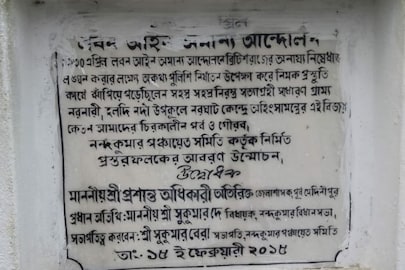 লবন আইন অমান্য আন্দোলন
১৯৩০ এপ্রিল লবন আইন অমান্য আন্দোলনে ব্রিটিশরাজের অন্যায্য নিষেধাজ্ঞা
লঙ্ঘন করার লক্ষ্যে অকথ্য পুলিশি নির্যাতন উপেক্ষা করে নিমক প্রস্তুতি
কার্যে ঝাঁপিয়ে পড়েছিলেন সহস্র সহস্র নিরস্ত্র সত্যাগ্রহী সাধারণ গ্রাম্য
নরনারী, হলদি নদী উপকূলে নরঘাট কেন্দ্রে অহিংসামন্ত্রের এই বিজয়
কেতন আমাদের চিরকালীন গর্ব ও গৌরব,
নন্দকুমার পঞ্চায়েত সমিতি কর্তৃক নির্মিত
প্রস্তরফলকের আবরণ উন্মোচন,
উদ্বোধক
মাননীয় শ্রী প্রশান্ত অধিকারী অতিরিক্ত জেলাশাসক, পূর্ব মেদিনীপুর
প্রধান অতিথি: মাননীয় শ্রী সুকুমার দে বিধায়ক, নন্দকুমার বিধানসভা,
সভাপতিত্ব করবেন: শ্রী সুকুমার বেরা সভাপতি, নন্দকুমার পঞ্চায়েত সমিতি
তাং- ১৫ ই ফেব্রুয়ারী ২০১৫